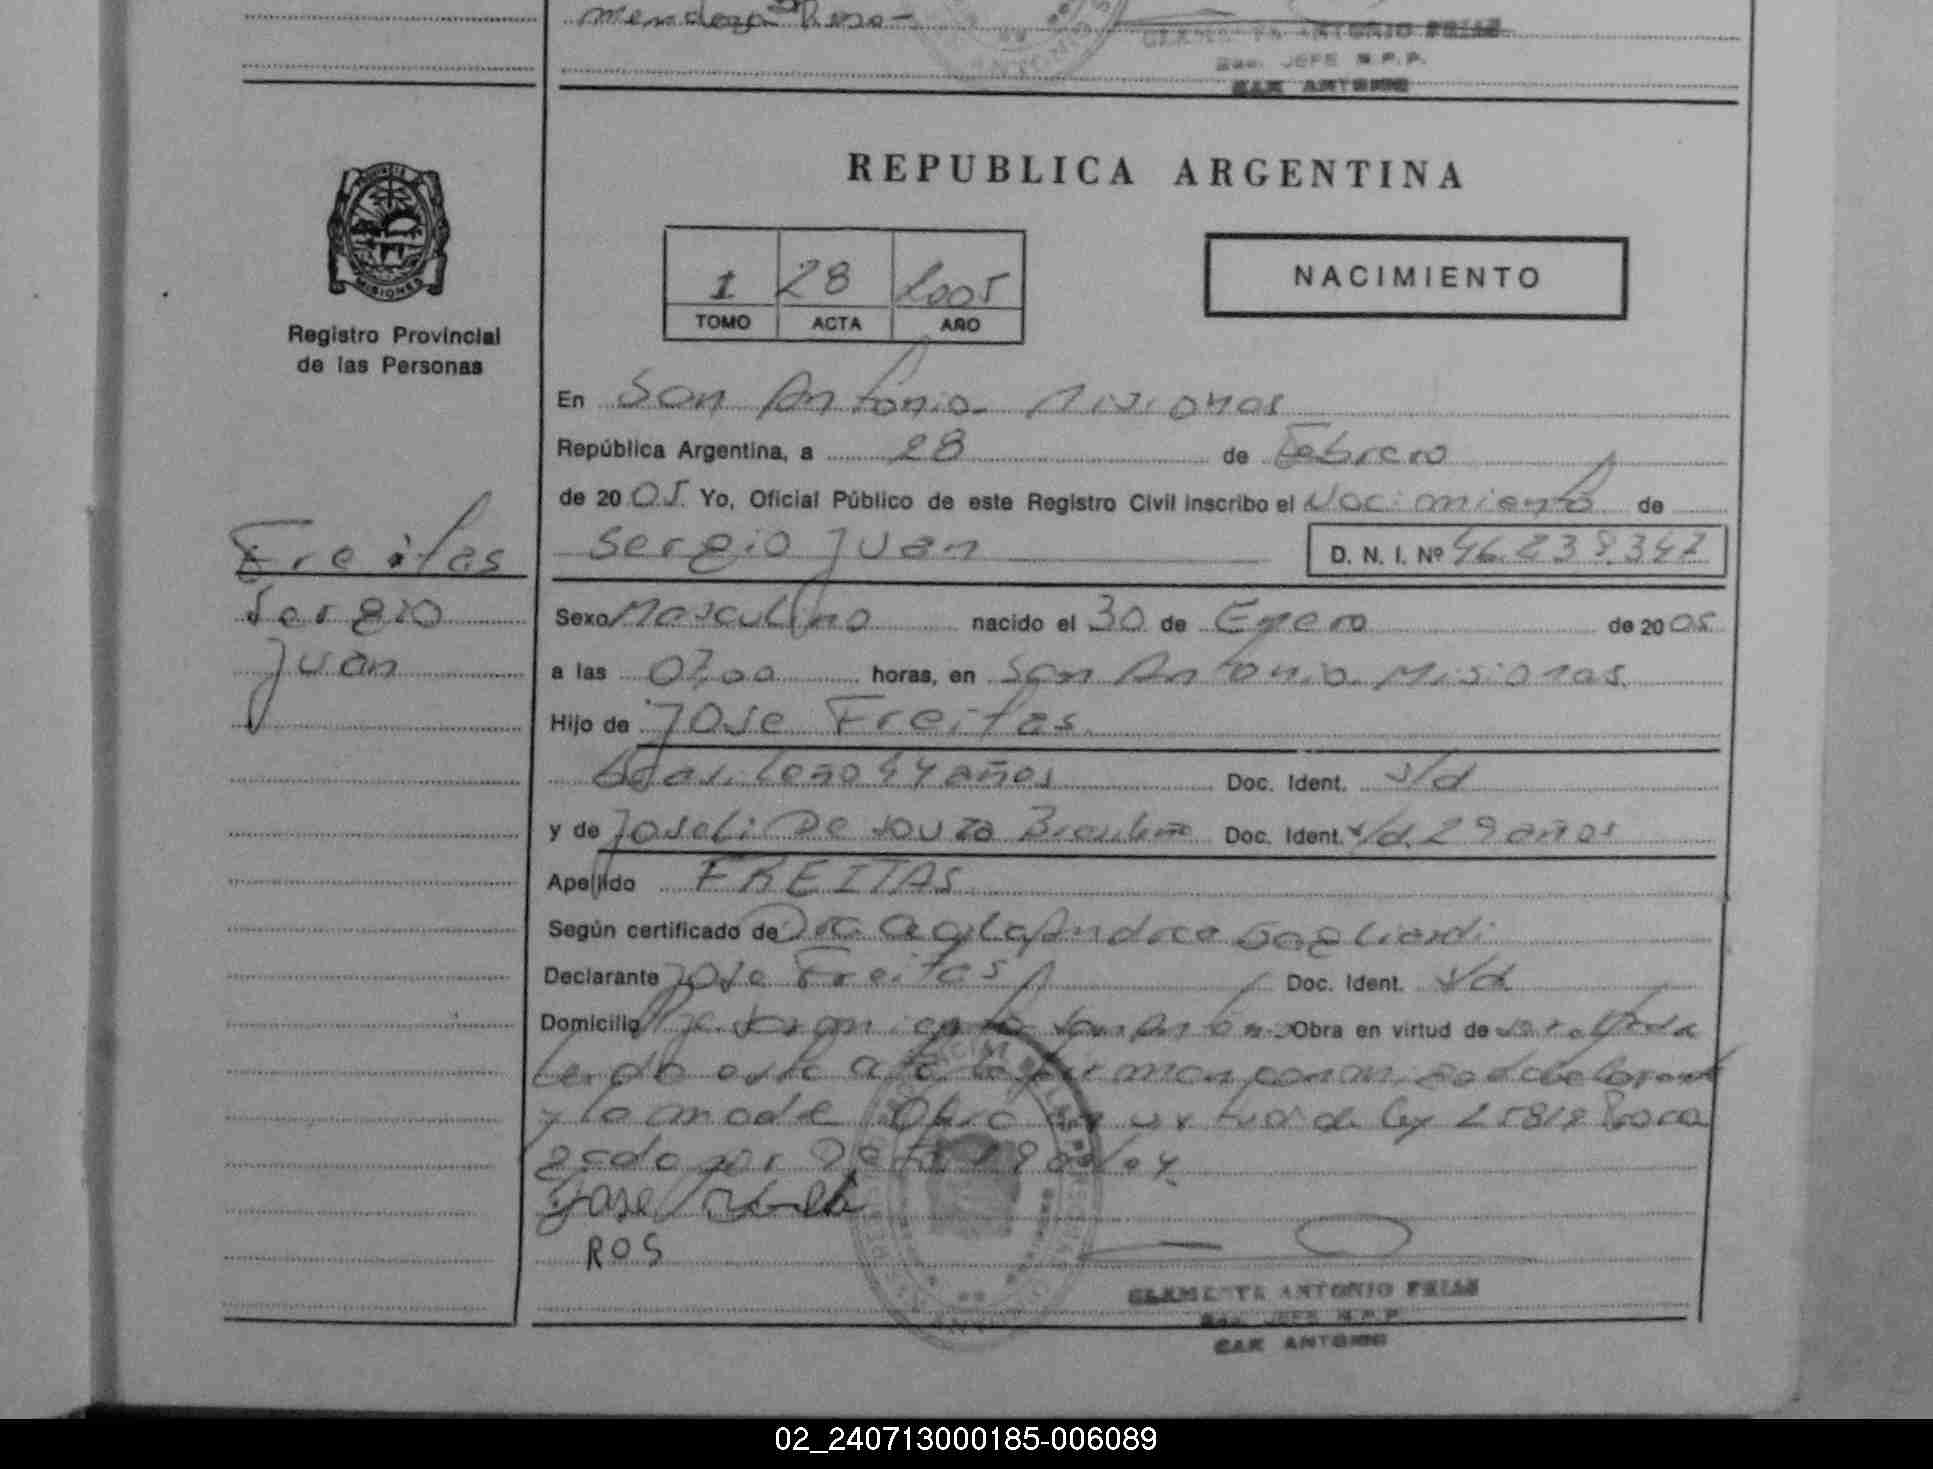 Mendoza Rosa-
CLEMENTE ANTONIO
JEFE R.P.P.
SAN ANTONIO
PROVINCIA
MISIONES
Registro Provincial
de las Personas
REPUBLICA ARGENTINA
1 28 2005
TOMO ACTA AÑO
NACIMIENTO
En San Antonio Misiones
República Argentina, a 28 de Febrero
de 2005. Yo, Oficial Público de este Registro Civil inscribo el Nacimiento de
Sergio Juan D. N. I. Nº 46.239.347
Freitas
Sergio
Juan
Sexo Masculino nacido el 30 de Enero de 2005
a las 07,00 horas, en San Antonio Misiones.
Hijo de Jose Freitas
Brasileño 44 años Doc. Ident. s/d
y de Joseli De Souza Brasileña Doc. Ident. s/d. 29 años
Apellido FREITAS
Según certificado de Dra. Andrea Gagliardi
Declarante Jose Freitas Doc. Ident. s/d
Domicilio San Antonio Obra en virtud de
esta acta la firman conmigo el declarante
y la madre Obra en virtud de ley 25819
por
Jose
ROS
CLEMENTE ANTONIO
JEFE R.P.P.
SAN ANTONIO
02_240713000185-006089